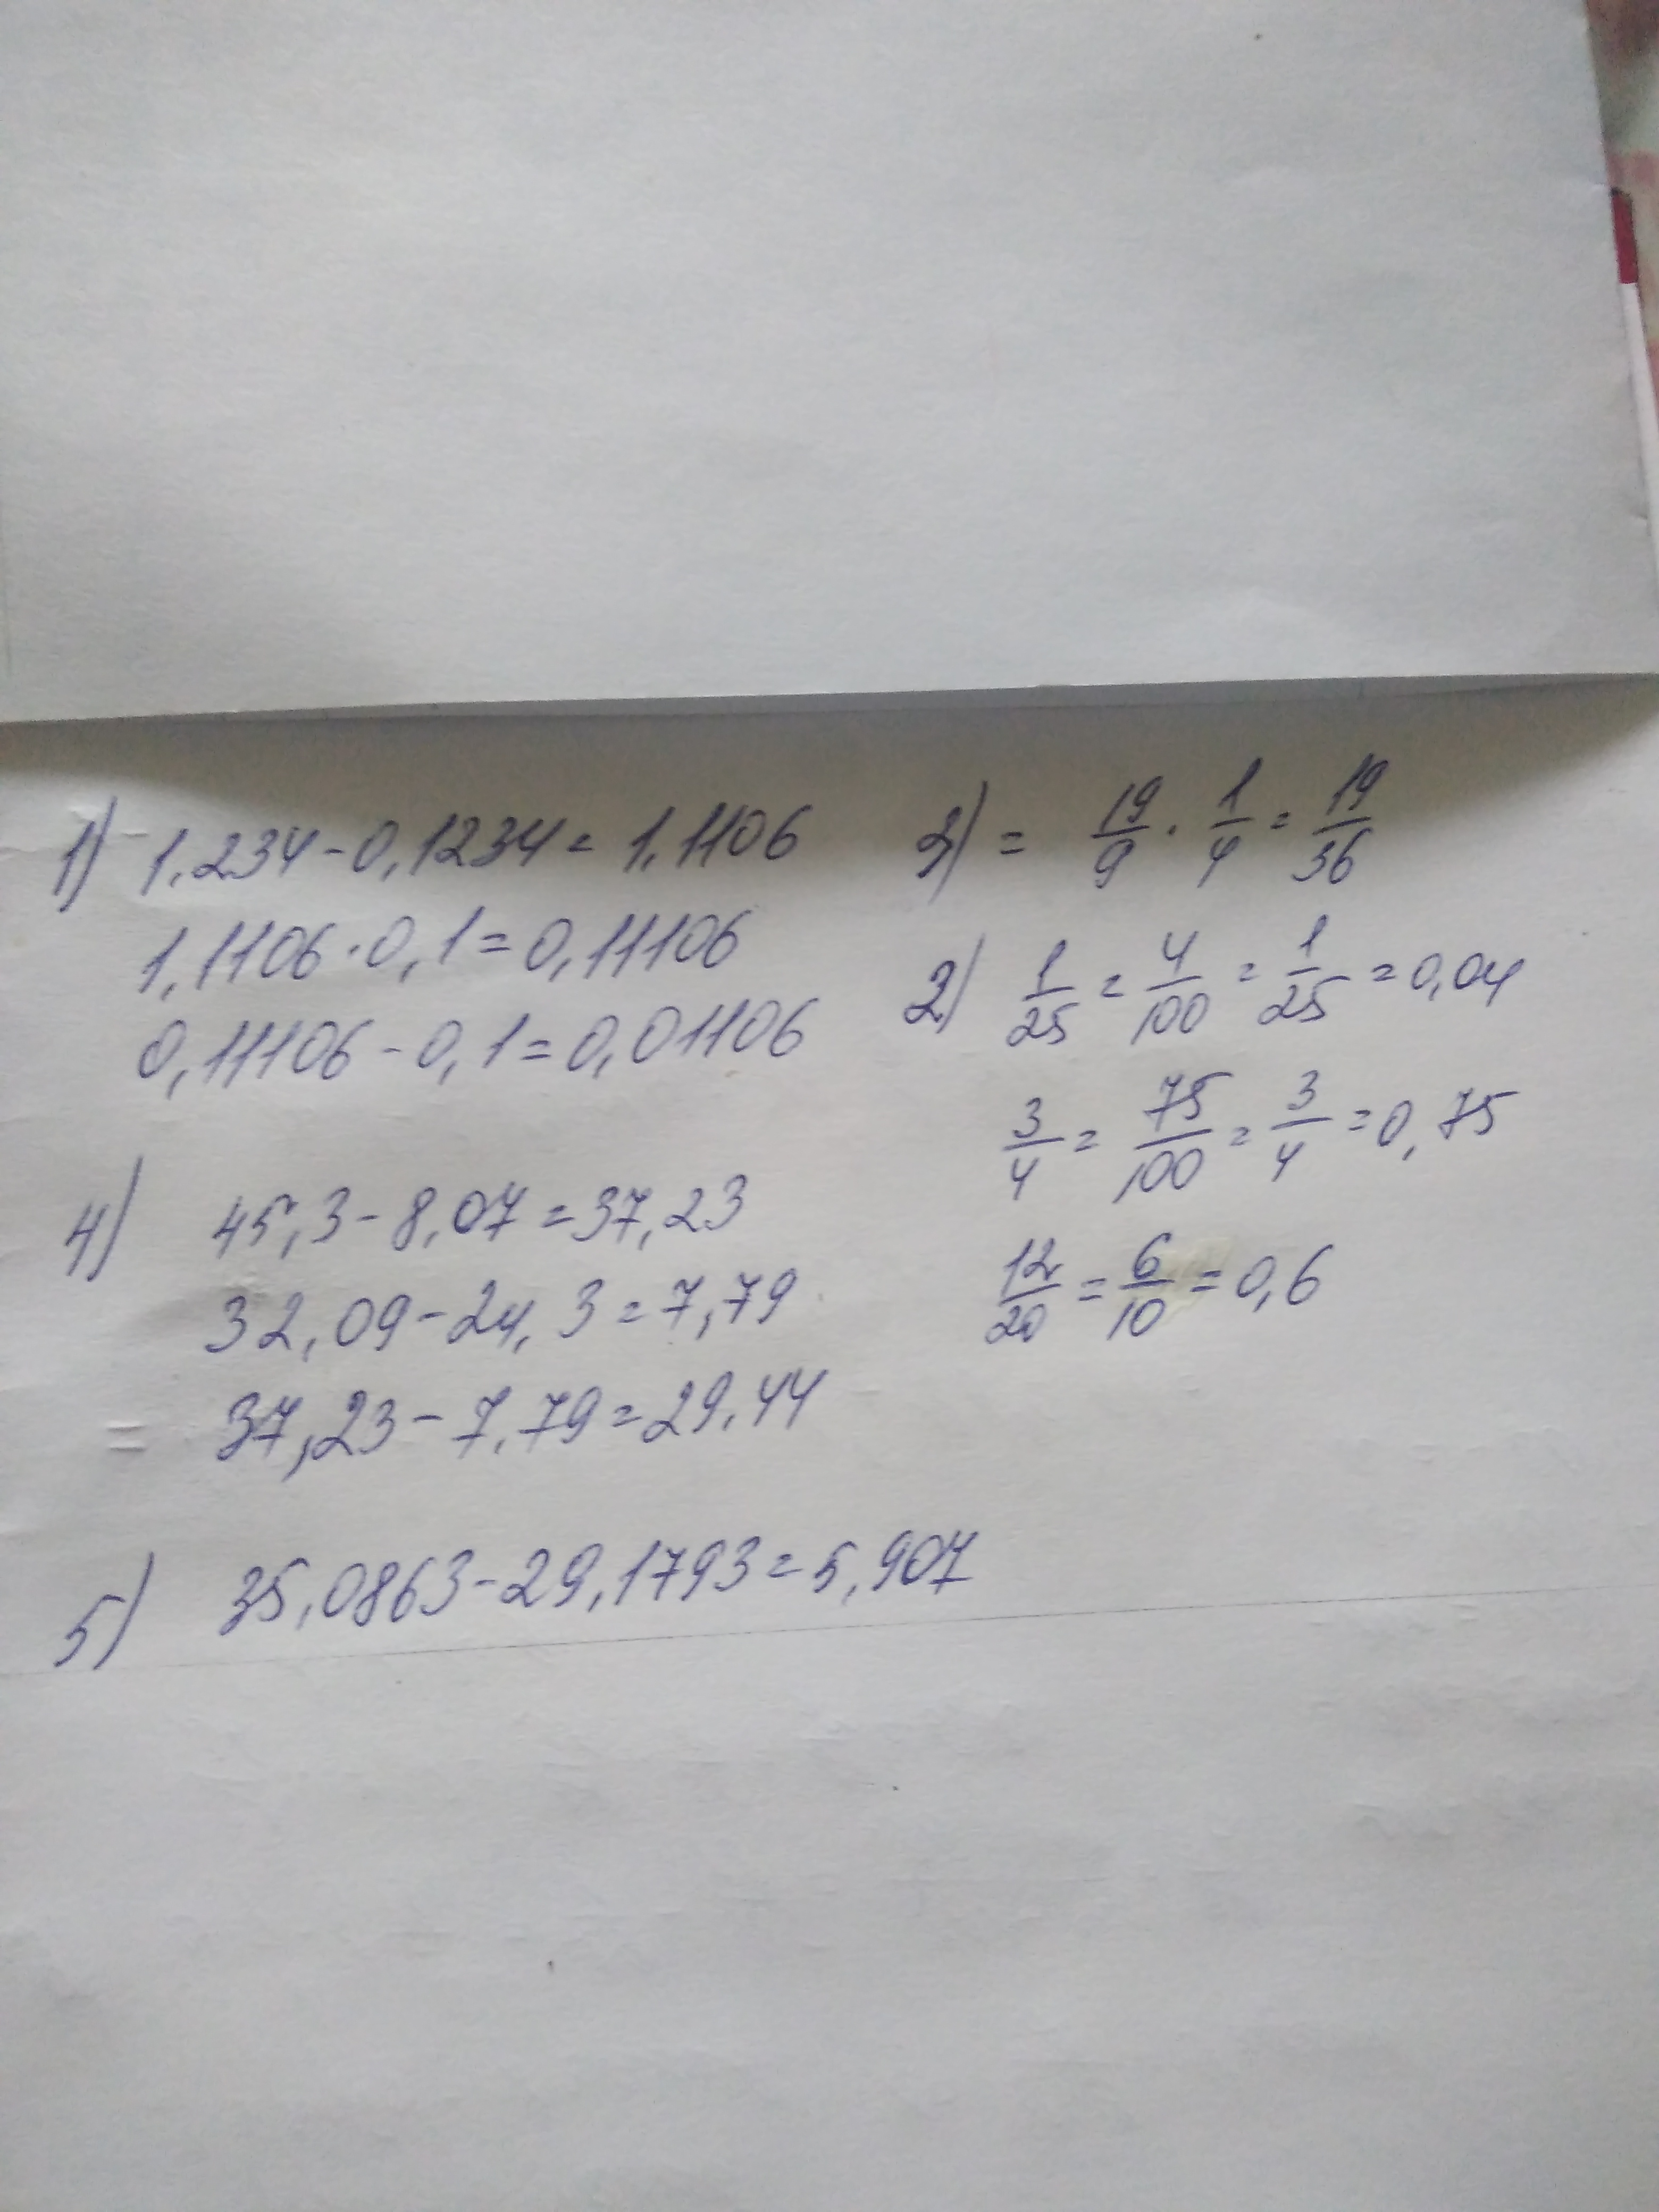 1) 1,234-0,1234=1,1106
1,1106·0,1=0,11106
0,11106-0,1=0,01106
4) 45,3-8,07=37,23
32,09-24,3=7,79
= 37,23-7,79=29,44
5) 35,0863-29,1793=5,907
3) = 19/9 · 1/4 = 19/36
2) 1/25 = 4/100 = 1/25 = 0,04
3/4 = 75/100 = 3/4 = 0,75
12/20 = 6/10 = 0,6